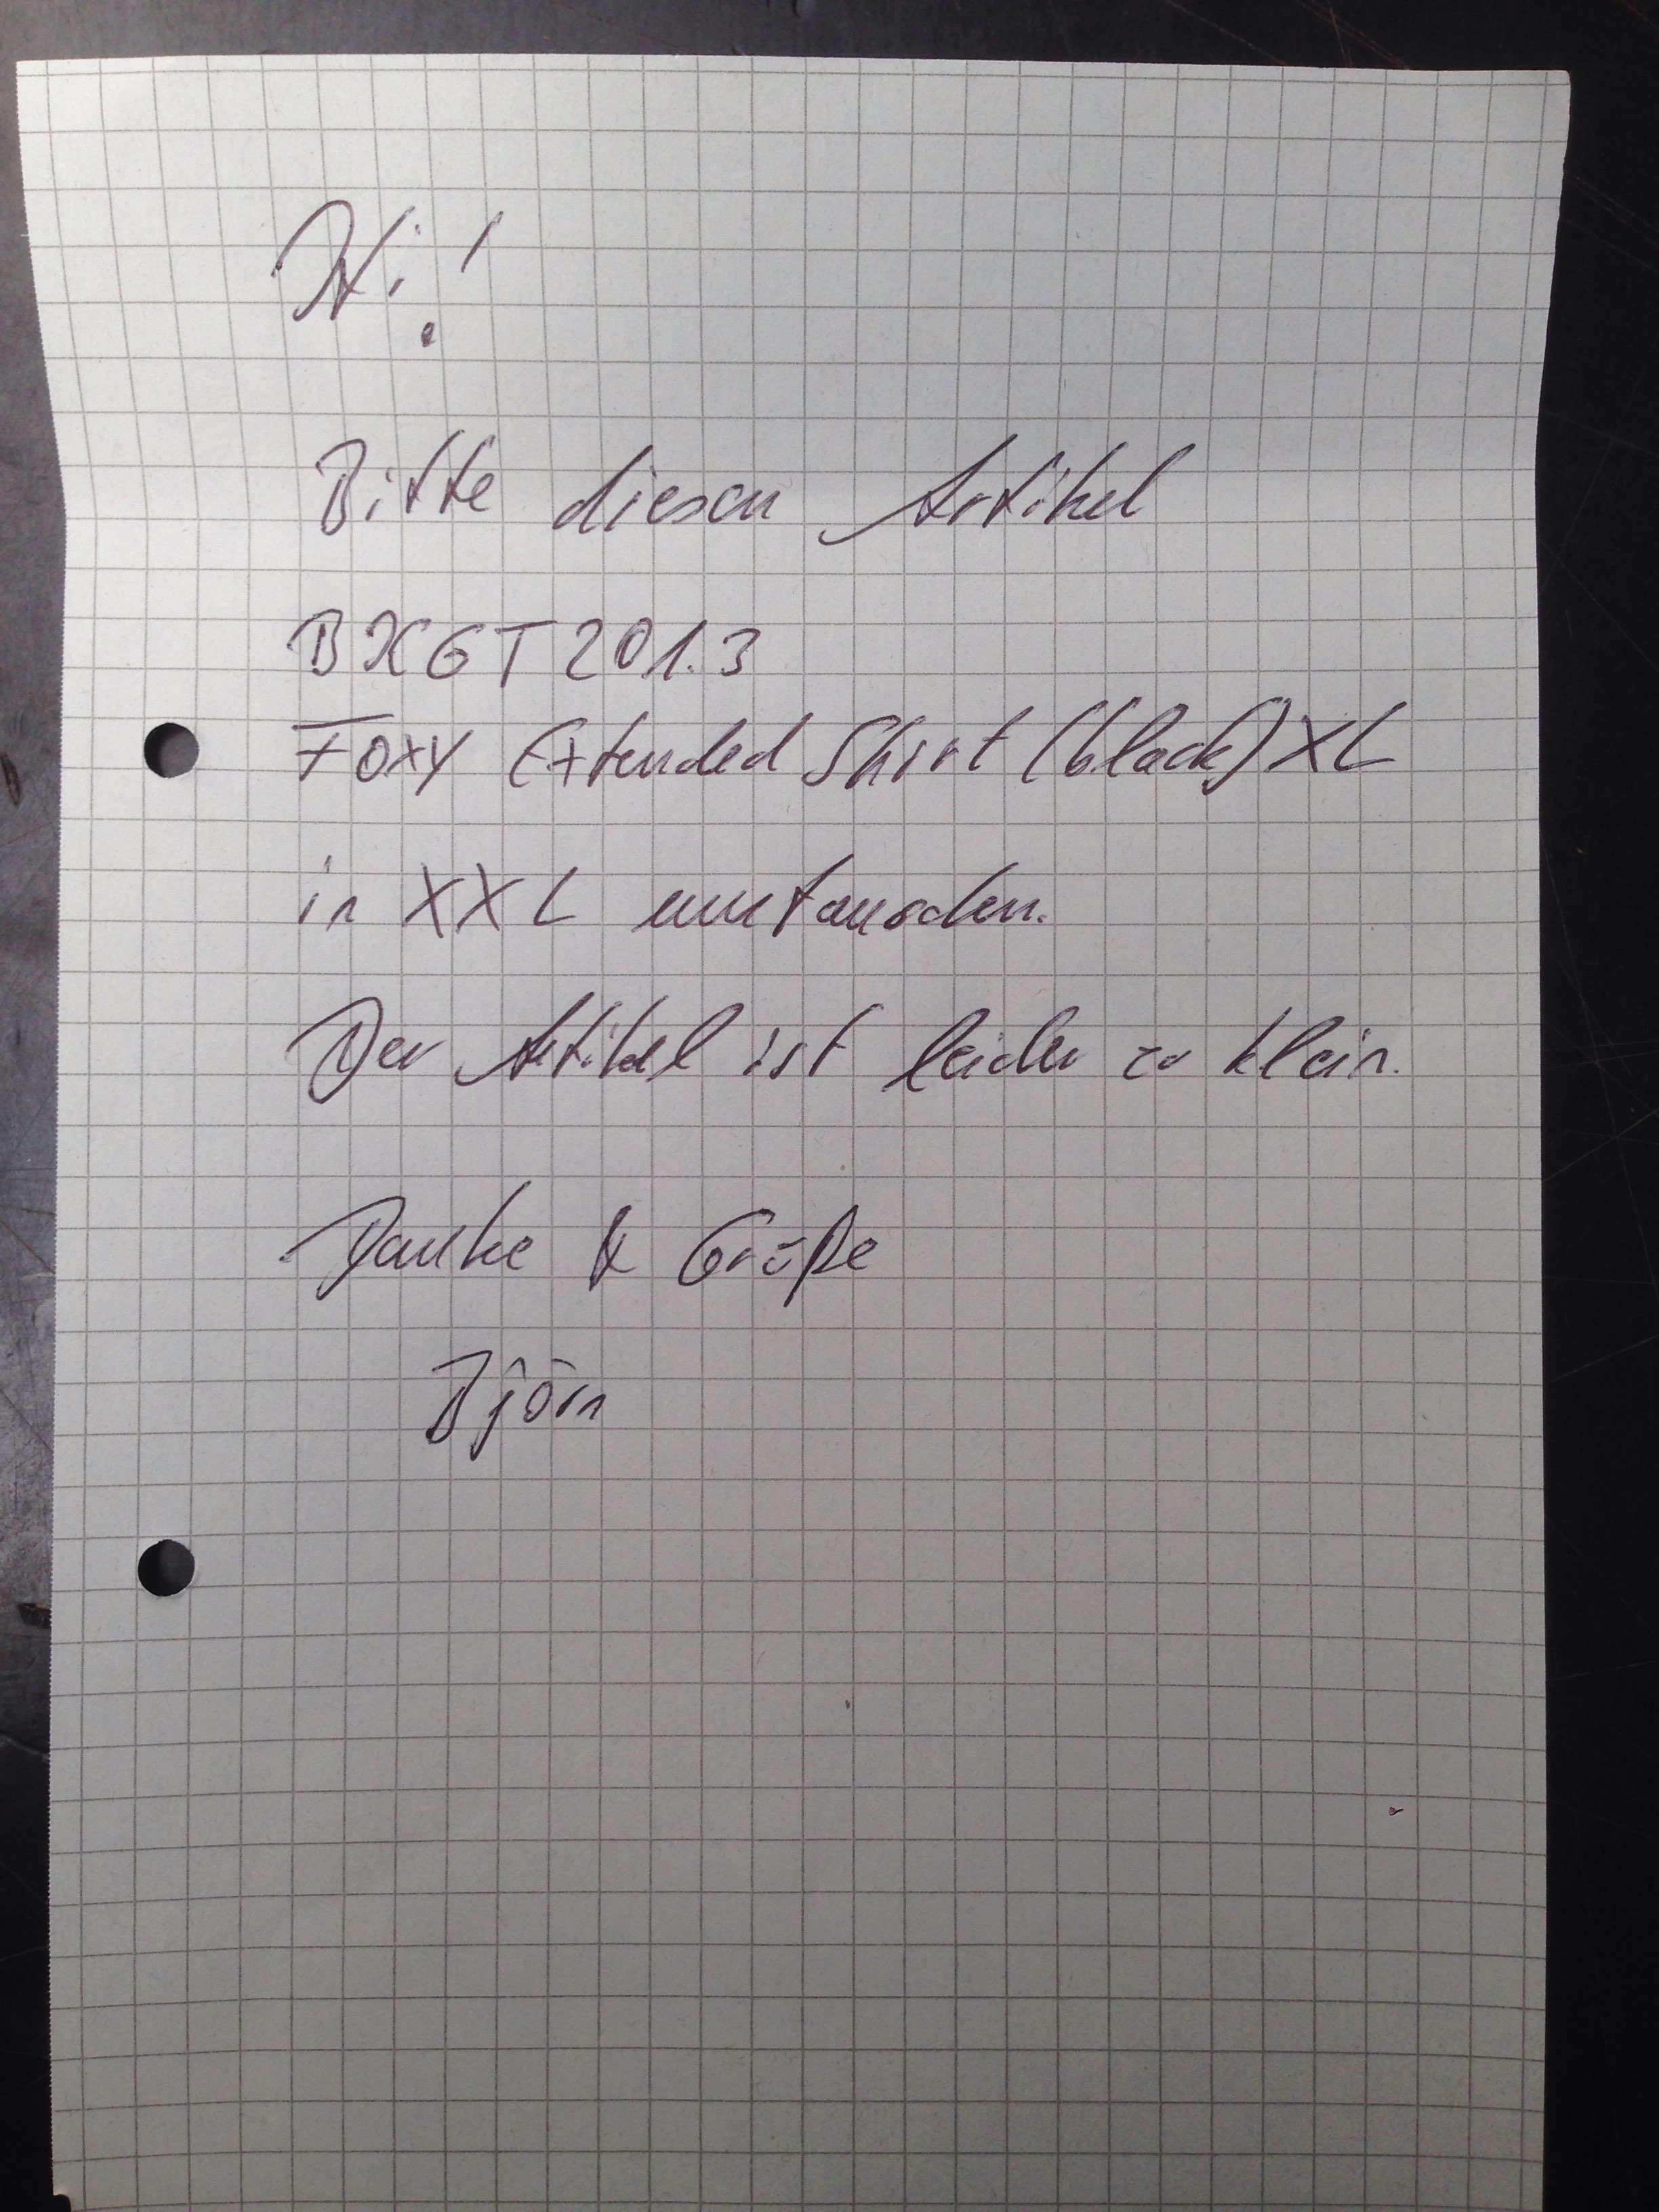 Hi!
Bitte diesen Artikel
BXGT201.3
Foxy Extended Shirt (black) XL
in XXL umtauschen.
Der Artikel ist leider zu klein.
Danke & Grüße
Björn